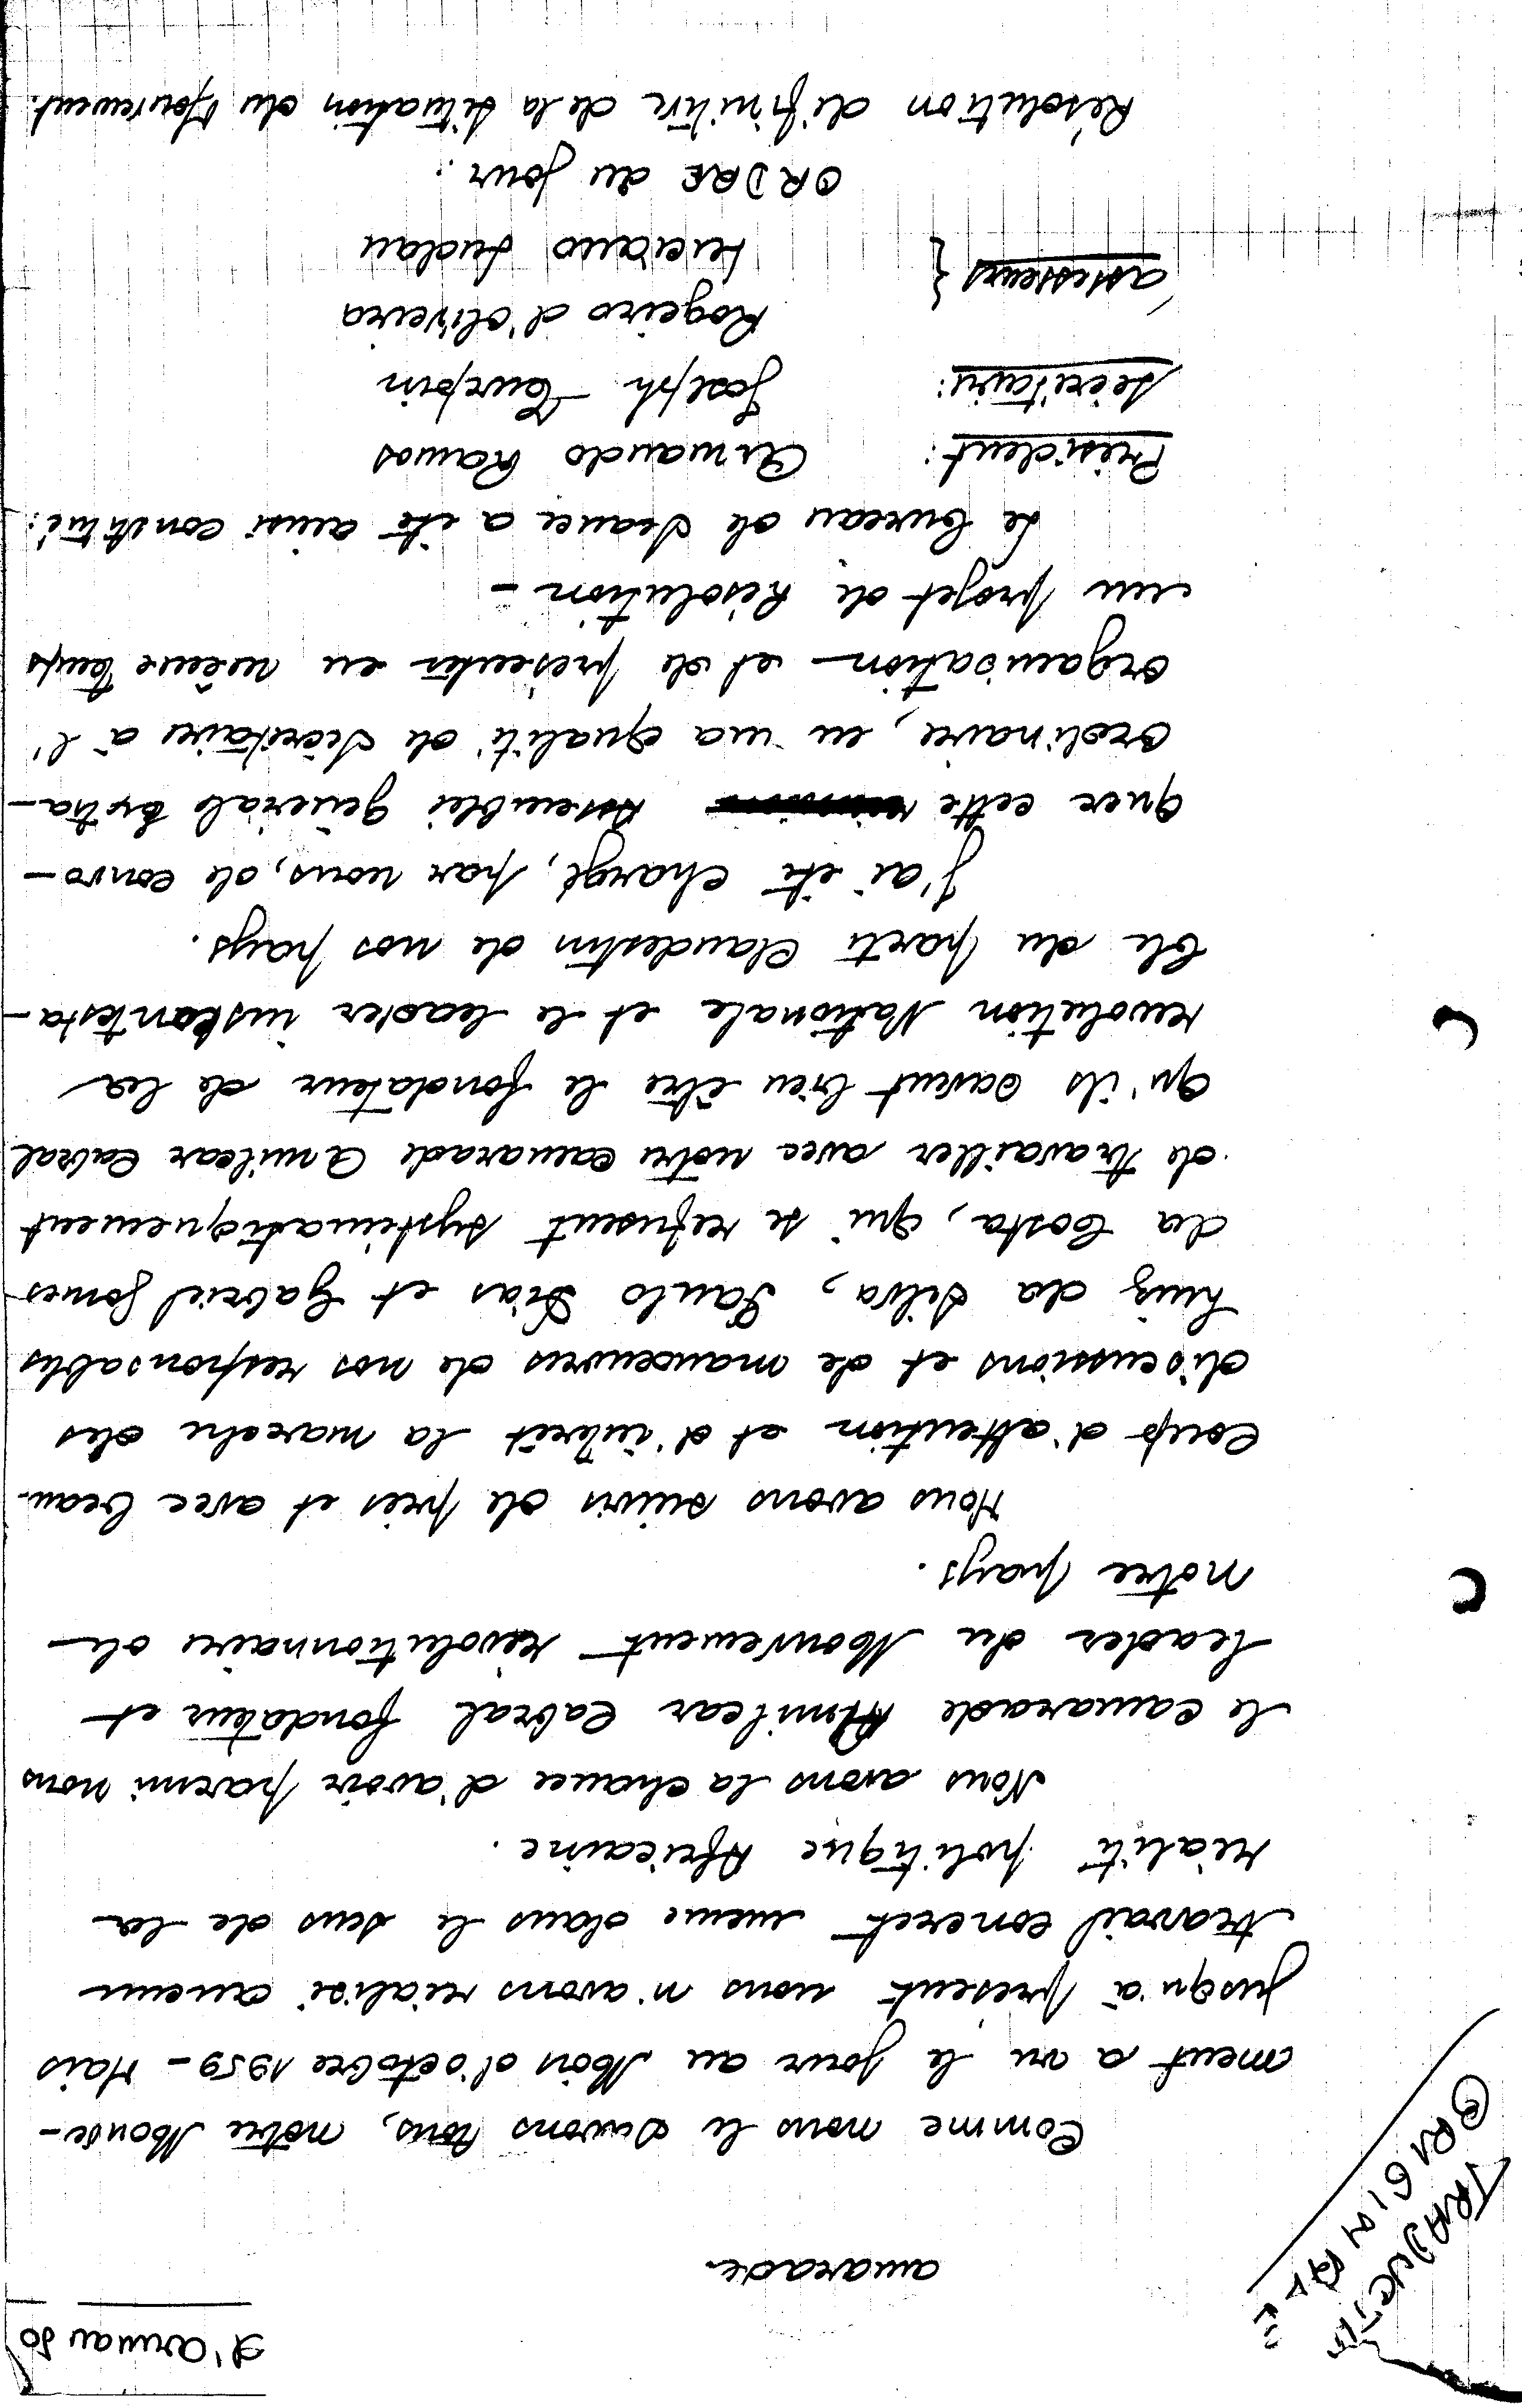 TRADUCTION
ORIGINALE
D'Armando
amarade
Comme nous le savons tous, nôtre Mouve-
ment a vu le jour au Mois d'octobre 1959 - Mais
jusqu'à présent nous n'avons réalisé aucun
travail concret meme dans le sens de la
réalité politique Africaine.
Nous avons la chance d'avoir parmi nous
le camarade Amilcar Cabral fondateur et
leader du Mouvement révolutionnaire de
nôtre pays.
Nous avons suivis de près et avec beau-
coup d'attention et d'intérêt la marche des
discussions et de manoeuvres de nos responsables
Luiz da Silva, Paulo Dias et Gabriel Gomes
da Costa, qui se refusent systématiquement
de travailler avec nôtre camarade Amilcar Cabral
qu'ils savent bien être le fondateur de la
révolution Nationale et le leader incontesta-
ble du parti clandestin de nos pays.
J'ai été chargé, par nous, de convo-
quer cette Assemblée générale Extra-
ordinaire, en ma qualité de Secrétaire à l'
organisation et de présenter en même temps
un projet de Résolution -
Le bureau de séance a été ainsi constitué:
Président: Armando Ramos
Secrétaire: Joseph Turpin
Assesseurs { Rogeiro d'Oliveira
Luciano Ludau
ORDRE du jour:
Résolution définitive de la situation du Mouvement.